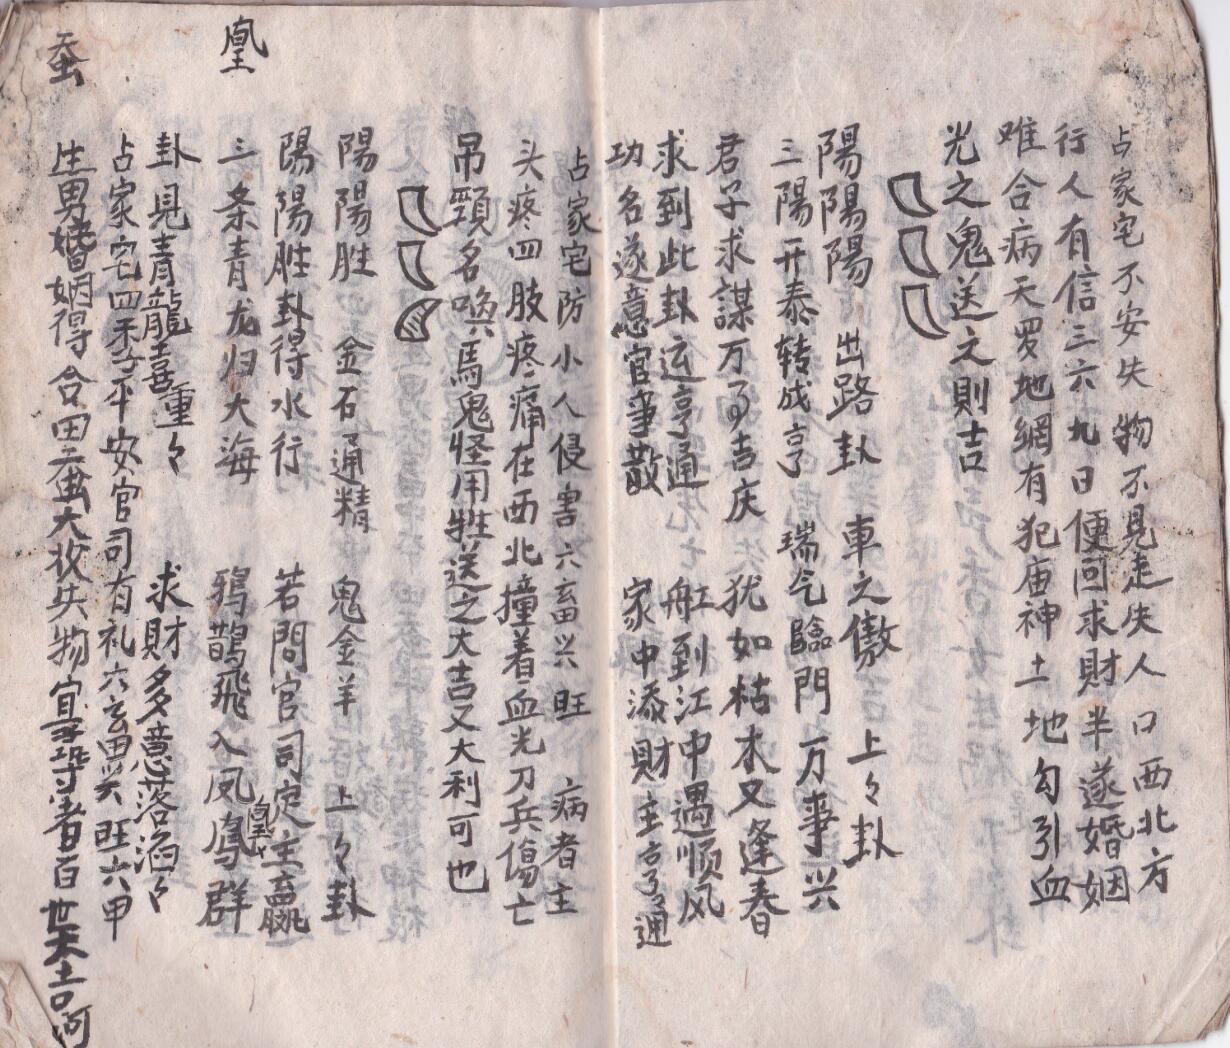 占家宅不安失物不見走失人口西北方
行人有信三六九日便回求財半遂婚姻
难合病天罗地網有犯庙神土地勾引血
光之鬼送之則吉
陽陽陽 出路卦 車之傲 上々卦
三陽开泰转成亨 瑞气臨門万事兴
君子求謀万事吉庆 犹如枯木又逢春
求到此卦运亨通 舡到江中遇顺风
功名遂意官事散 家中添財主亨通
占家宅防小人侵害六畜兴旺 病者主
头疼四肢疼痛在西北撞着血光刀兵傷亡
吊頸名唤馬鬼怪用牲送之大吉又大利可也
陽陽胜 金石通精 鬼金羊 上々卦
陽陽胜卦得水行 若問官司定主贏
三条青龙归大海 鴉鵲飛入凤凰群
凰
卦見青龍喜重々 求財多意落滔々
占家宅四季平安官司有礼六畜興旺六甲
蚕
生男婚姻得合田蚕大收失物宜尋者百